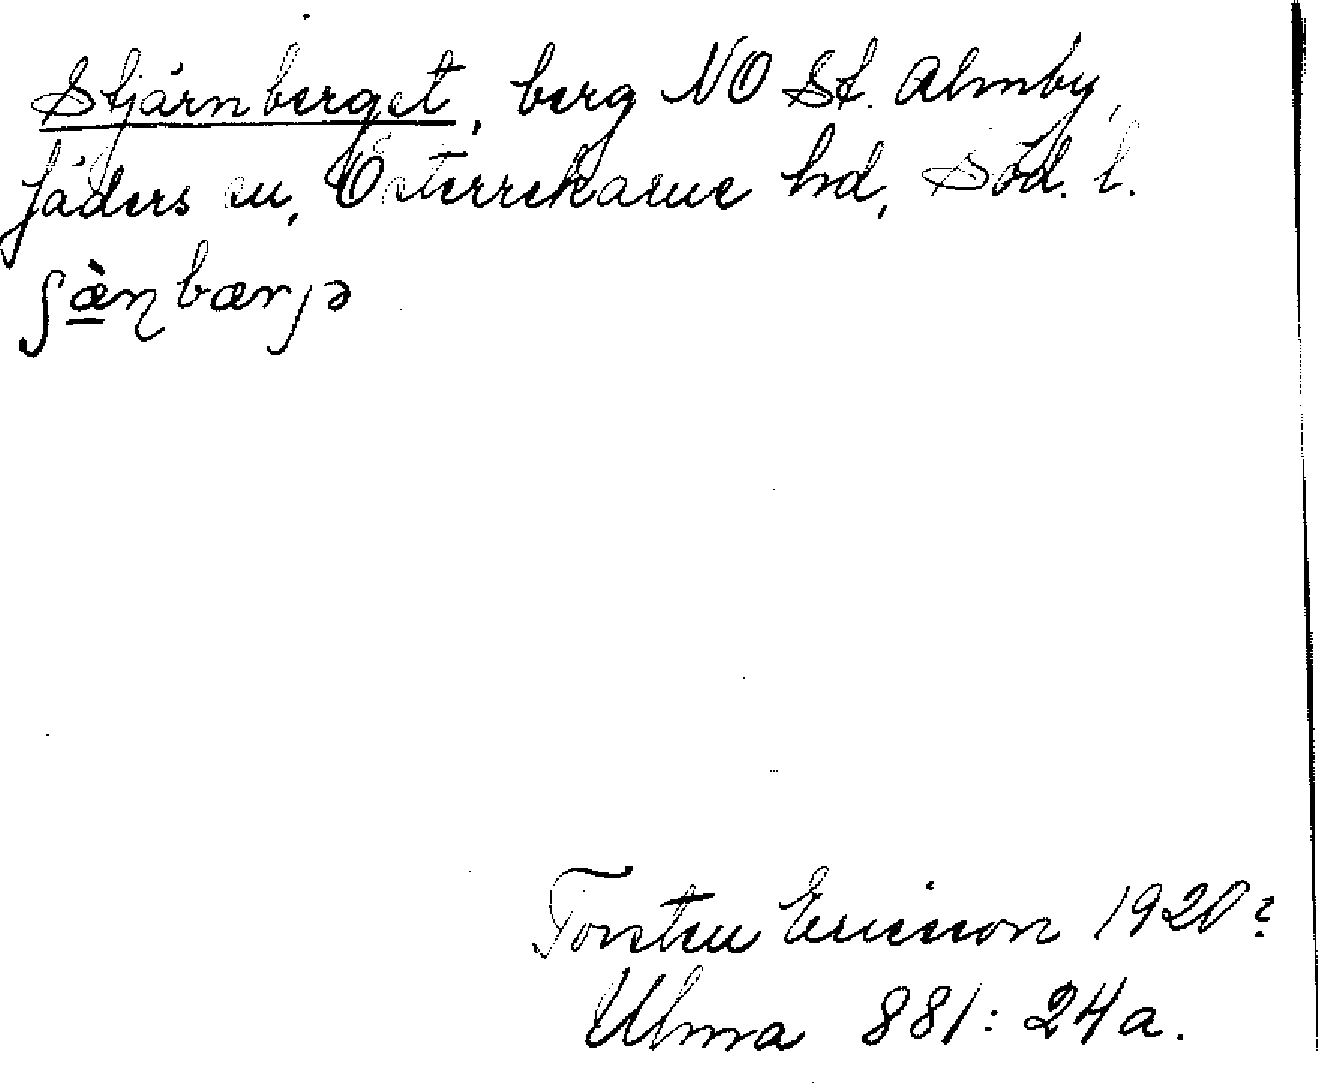 Stjärnberget, berg NO St. Almby,
Jäders sn, Österrekarne hd, Söd. l.
ʃæ̀ɳbærjə
Torsten Ericsson 1920?
Ulma 881: 24a.